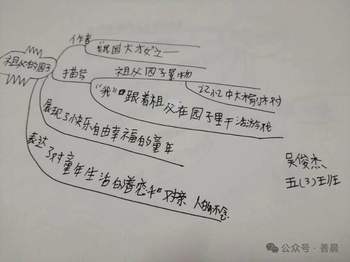 祖父的园子
作者
"民国才女"之一
描写
祖父园子景物
记忆中大榆树
"我"跟着祖父在园子里干活游戏
展现了快乐自由幸福的童年
表达了对童年生活的眷恋和对亲人的怀念
吴俊杰
五(3)班
公众号·善晨